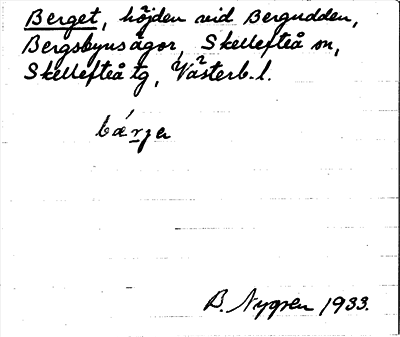 Berget, höjden vid Bergudden,
Bergsbynsägor, Skellefteå sn,
Skellefteå tg, Västerb. l.
bǽrjer
B. Nygren 1933.